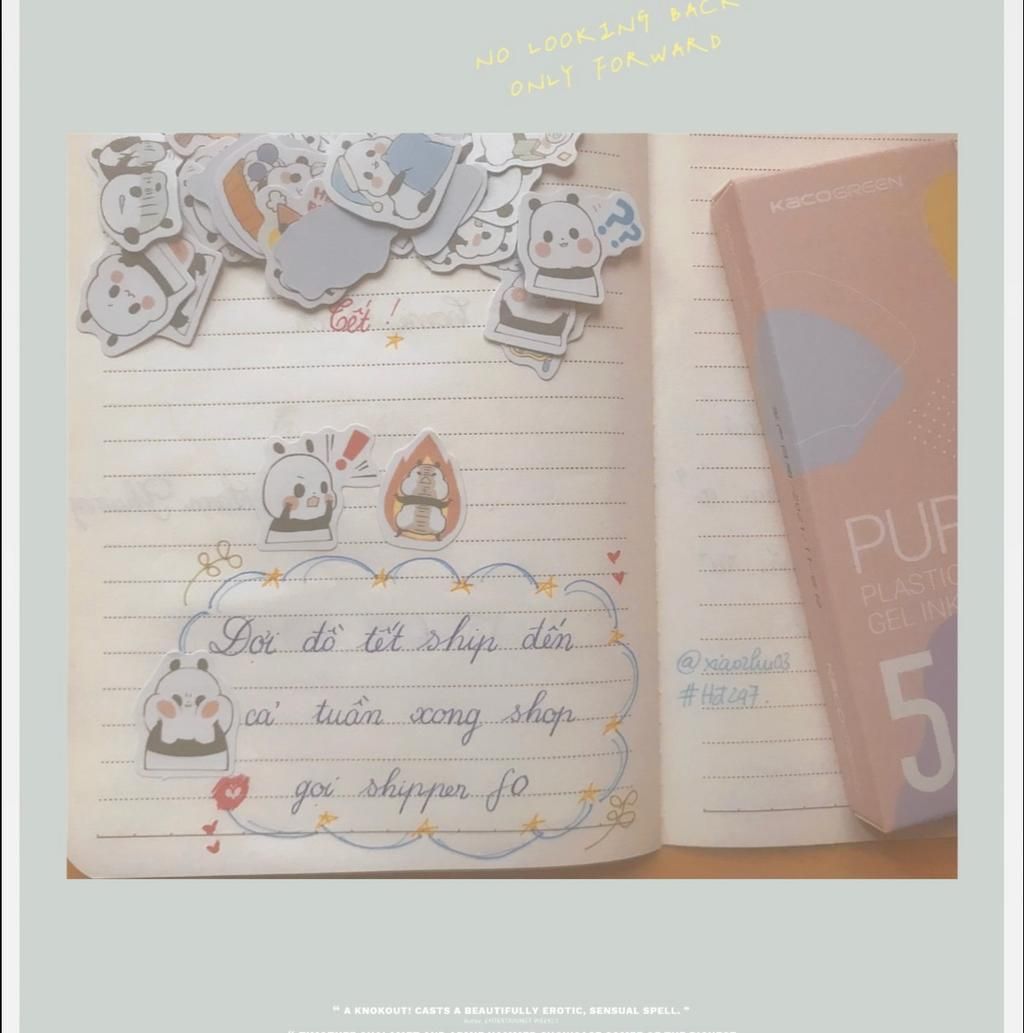 NO LOOKING BACK
ONLY FORWARD
KACOGREEN
??
Tết !
!
PUR
PLASTIC
GEL INK
5
Đợi đồ tết ship đến
cả tuần xong shop
gọi shipper fo
@xiaozhu03
“ A KNOKOUT! CASTS A BEAUTIFULLY EROTIC, SENSUAL SPELL. ”